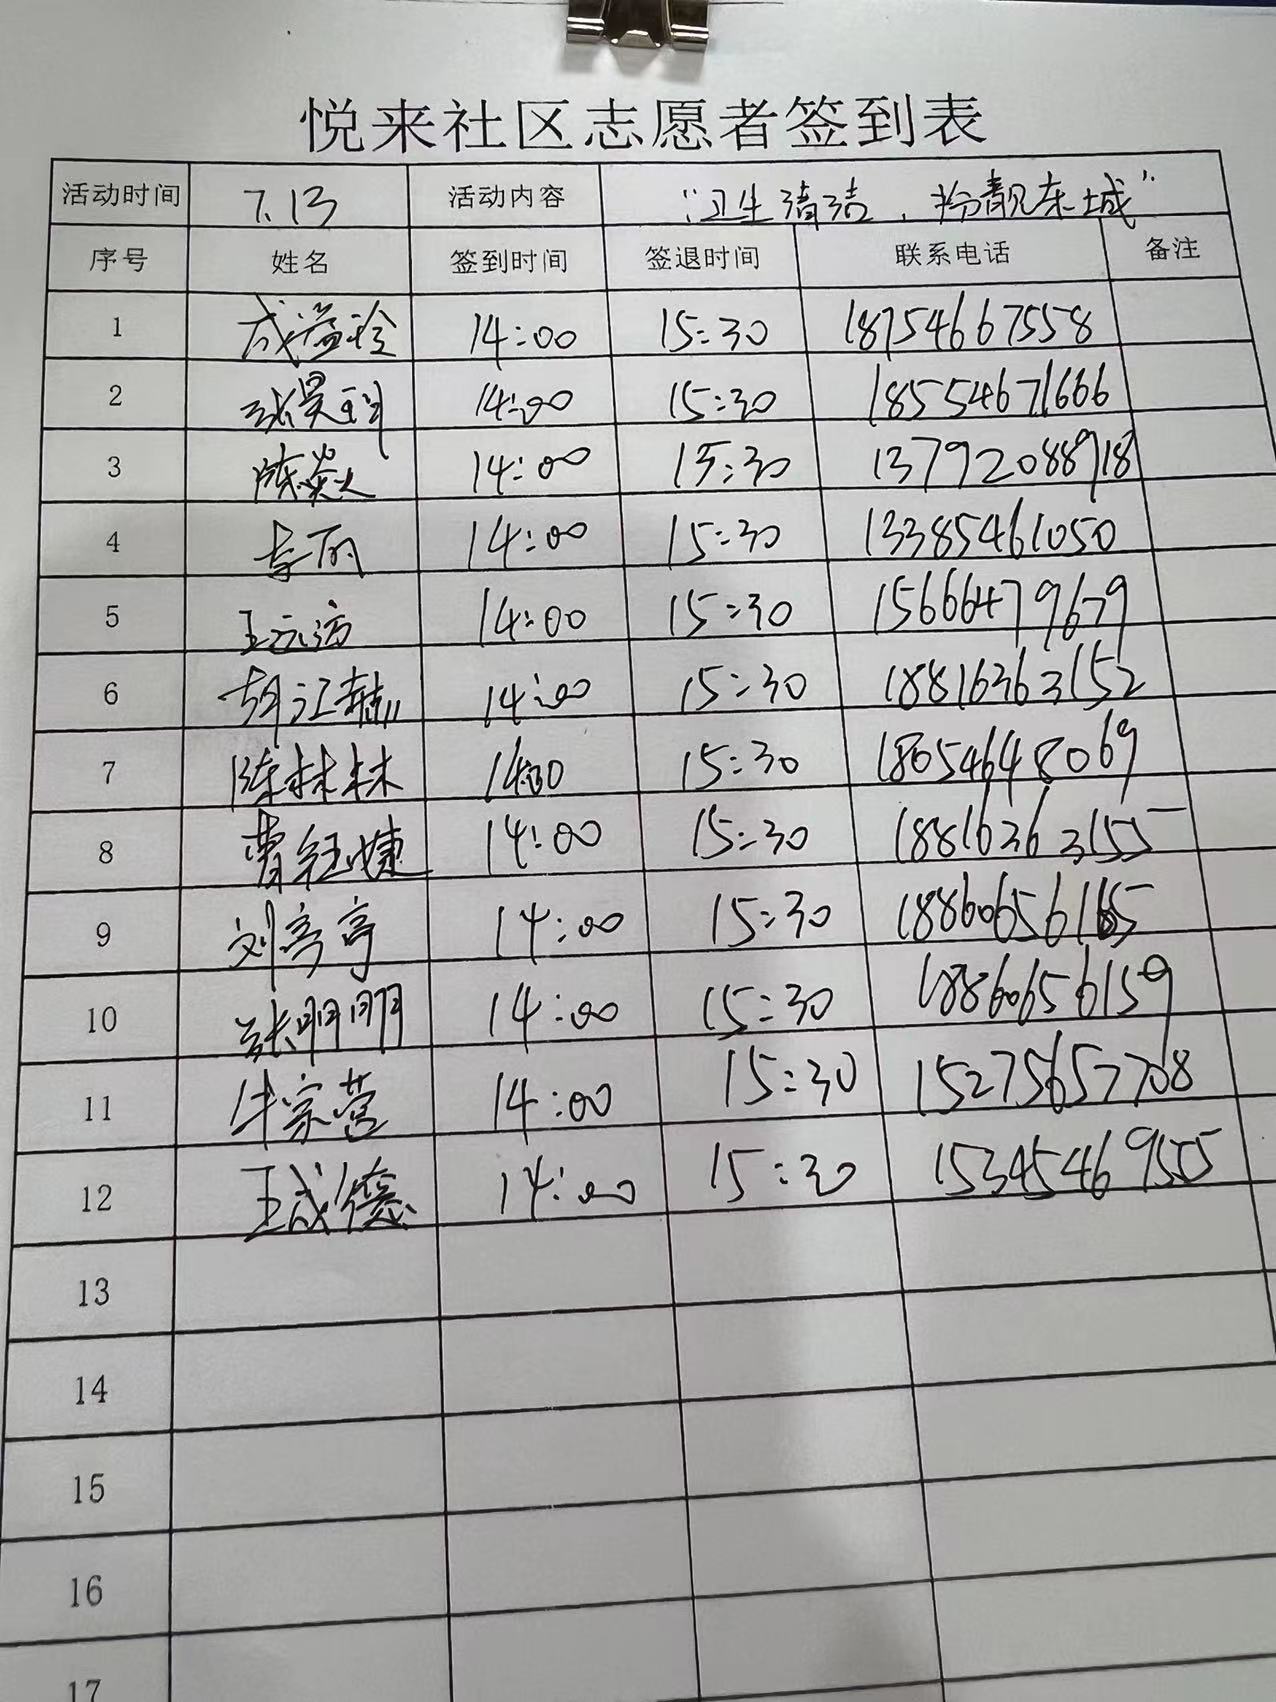 悦来社区志愿者签到表
活动时间 7.13 活动内容 "卫生清洁，扮靓东城"
序号 姓名 签到时间 签退时间 联系电话 备注
1 成益玲 14:00 15:30 18754667558
2 14:00 15:30 18554671666
3 14:00 15:30 13792088918
4 李丽 14:00 15:30 13385461050
5 14:00 15:30 15666479679
6 14:00 15:30 18816363152
7 陈林林 14:00 15:30 18654648069
8 曹钰婕 14:00 15:30 18816363155
9 刘亭亭 14:00 15:30 18860656165
10 张明明 14:00 15:30 18860656159
11 牛家营 14:00 15:30 15275657708
12 王成德 14:00 15:30 15345469505
13
14
15
16
17